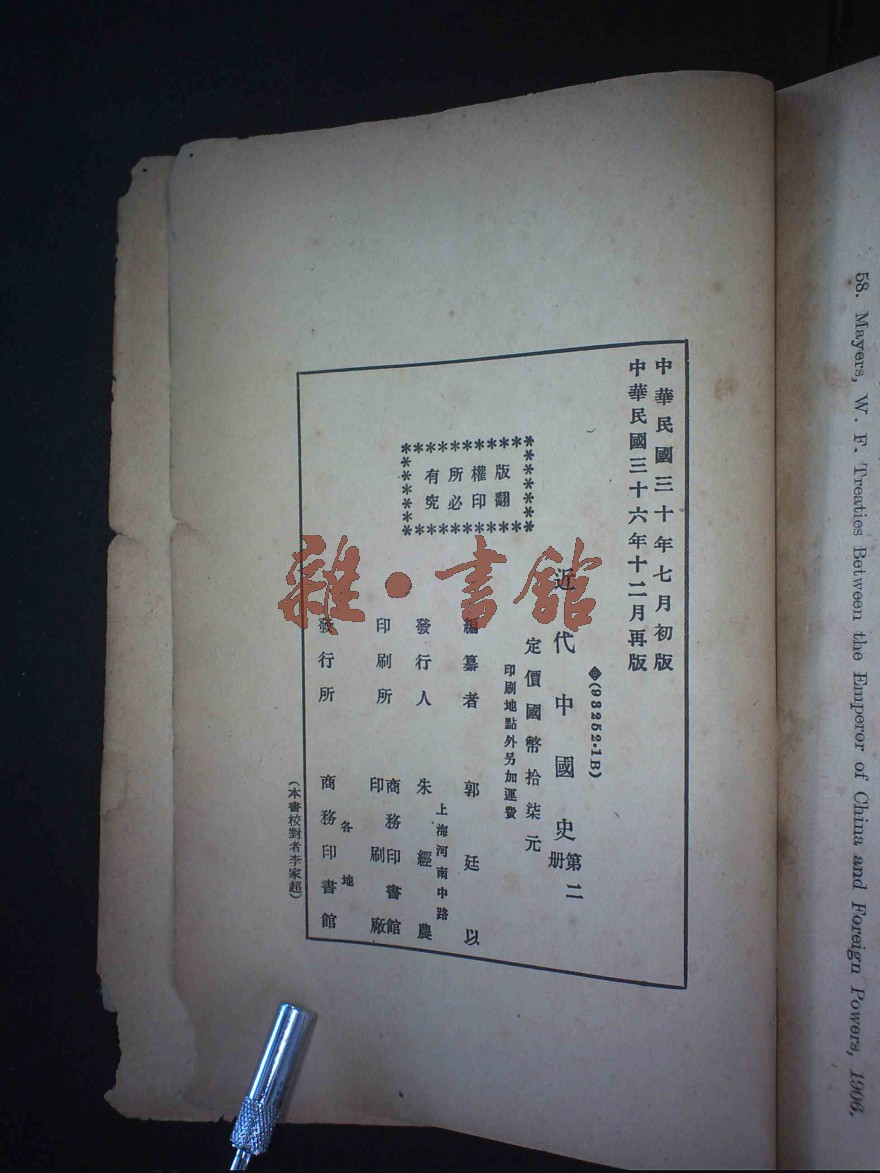 中華民國三十年七月初版
中華民國三十六年十二月再版
(93252·1B)
近代中國史 第二册
定價國幣拾柒元
印刷地點外另加運費
版權所有
翻印必究
編纂者 郭廷以
上海河南中路
發行人 朱經農
印刷所 商務印書館印刷廠
各地
發行所 商務印書館
(本書校對者李家超)
雜·書館
58. Mayers, W. F. Treaties Between the Emperor of China and Foreign Powers, 1906.